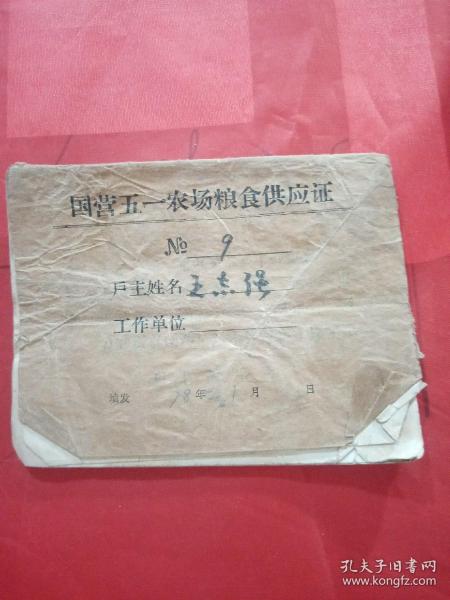 国营五一农场粮食供应证
№ 9
户主姓名 王志强
工作单位
填发 78年 1月 日
孔夫子旧书网
www.kongfz.com